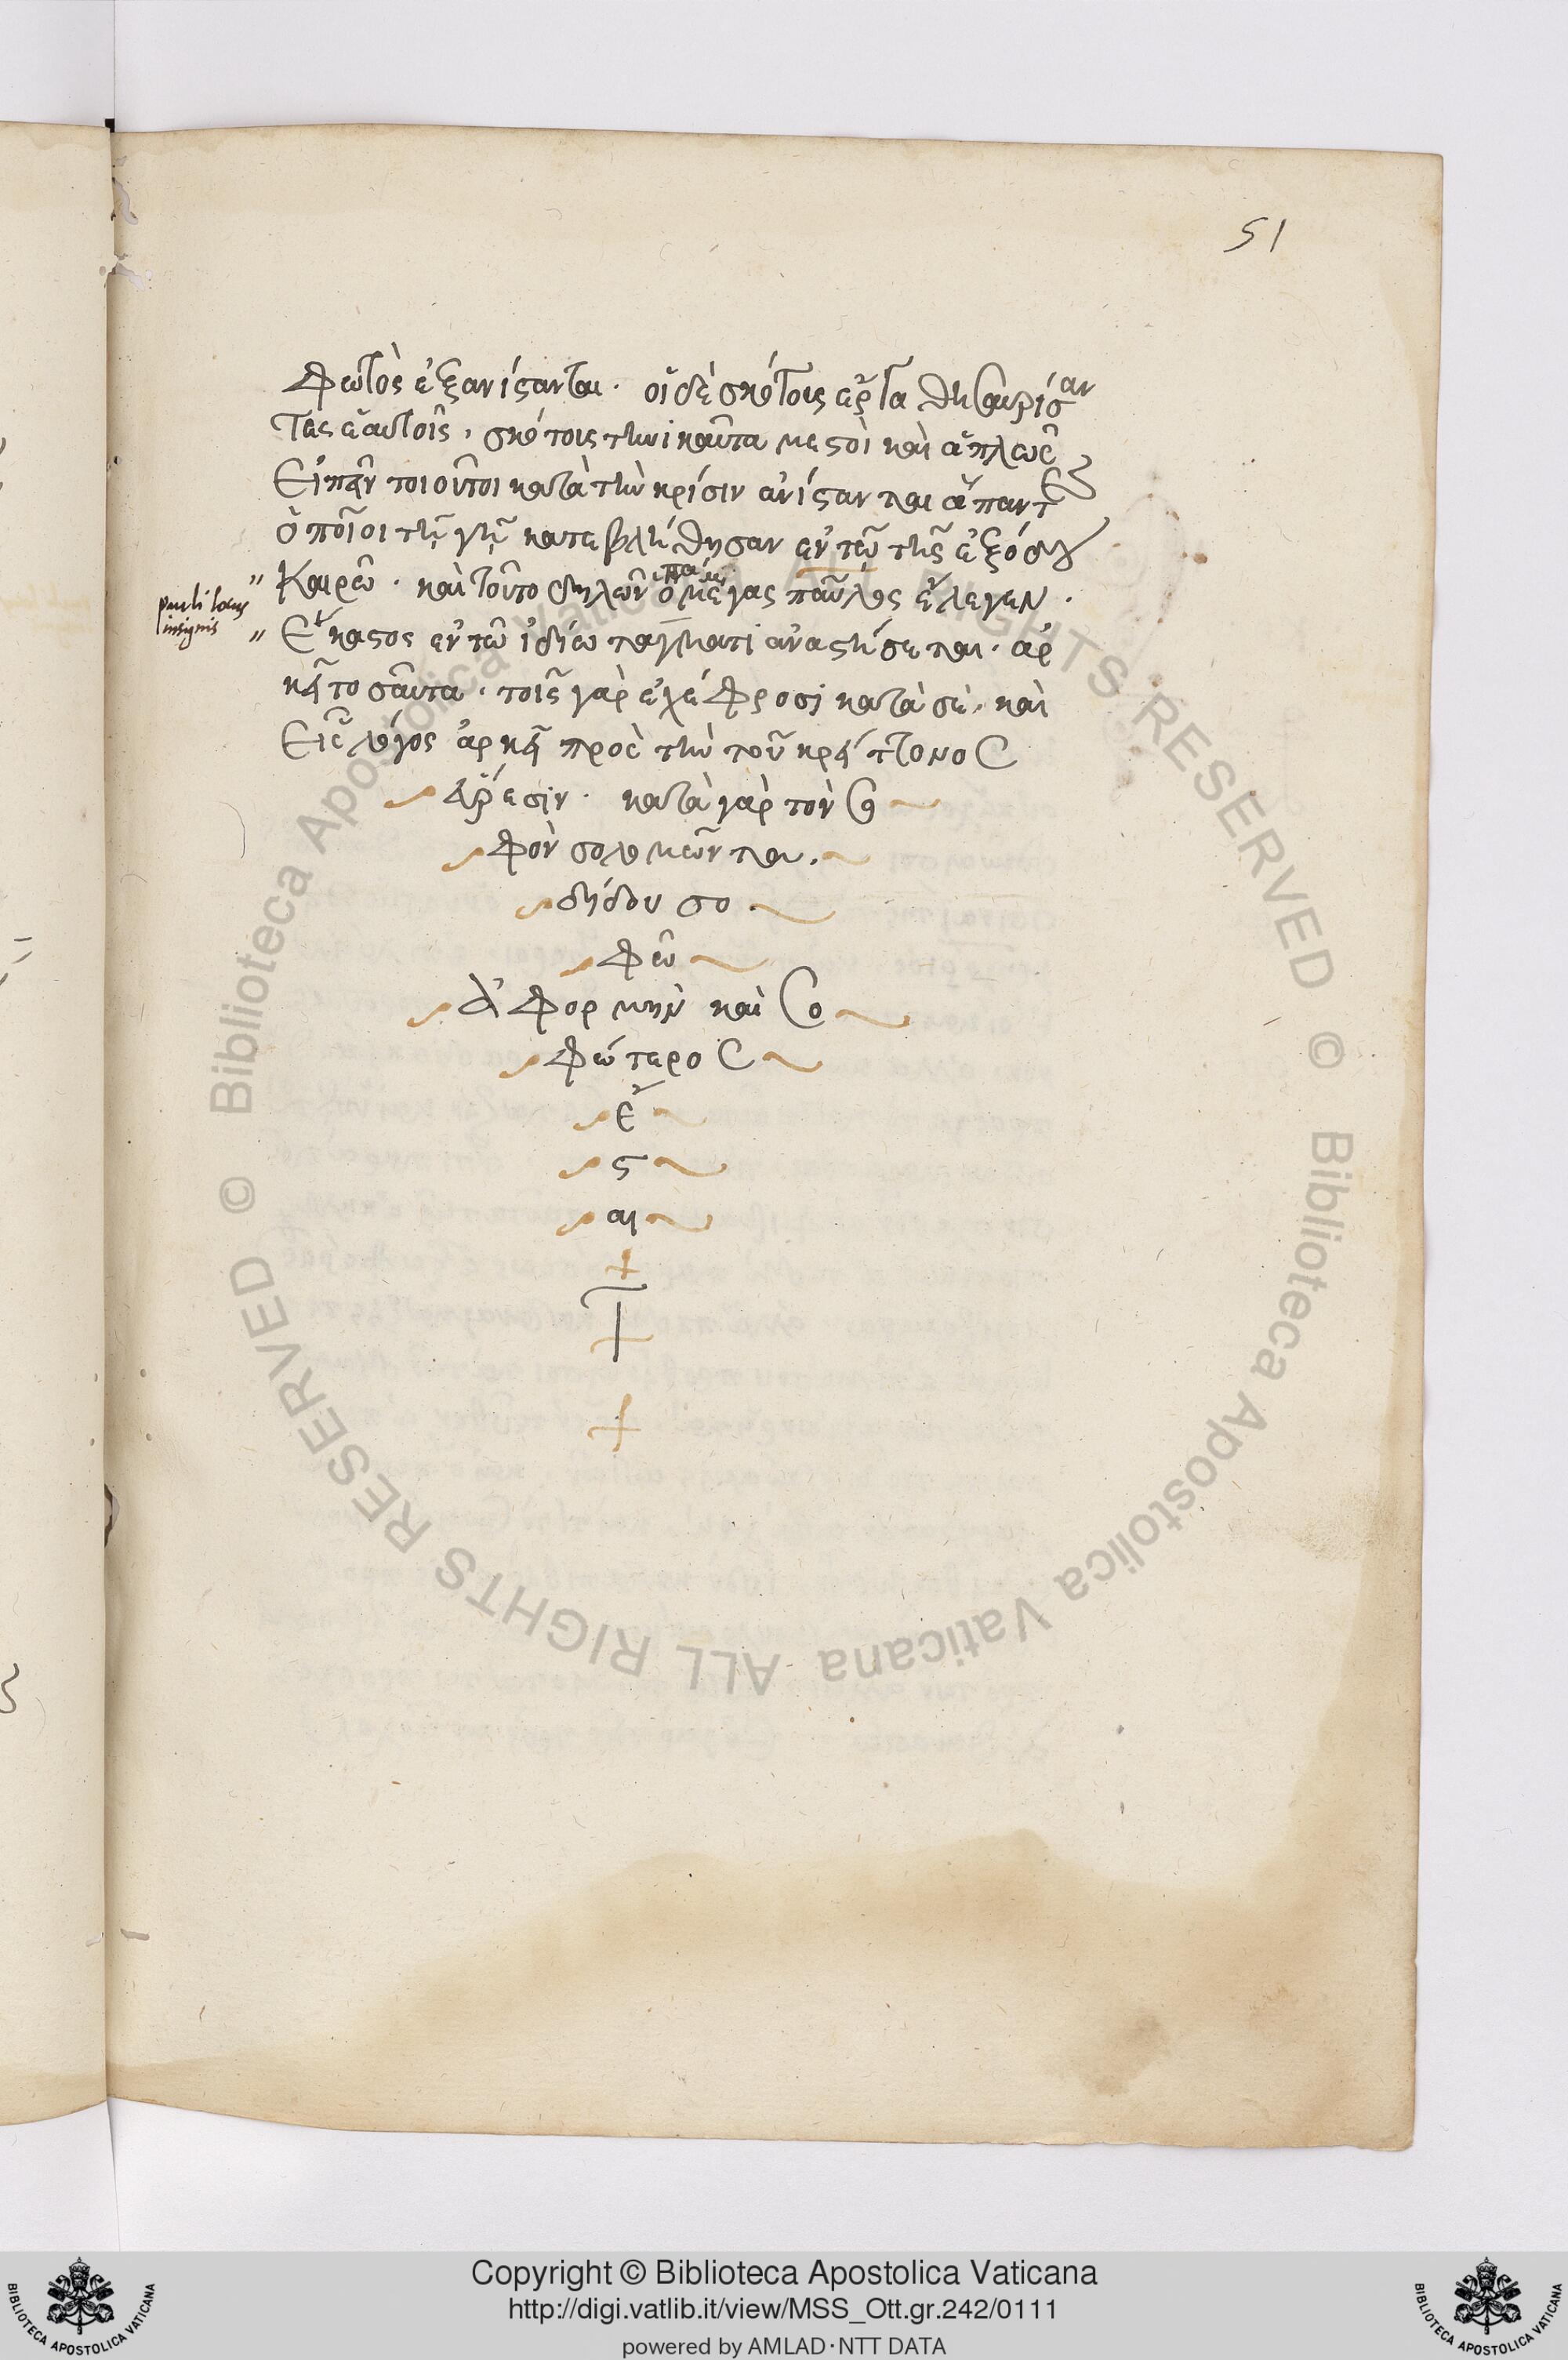 51
φωτὸς ἐξανίστανται. οἱ δὲ σκότους ἔργα θησαυρίσαν
τες ἑαυτοῖς, σκότους τηνικαῦτα μεστοὶ καὶ ἁπλῶς
εἰπεῖν τοιοῦτοι κατὰ τὴν κρίσιν ἀνίστανται ἅπαντες
ὁποῖοι τῇ γῇ κατεβλήθησαν ἐν τῷ τῆς ἐξόδου
καιρῷ. καὶ τοῦτο δηλῶν ὁ μέγας παῦλος ἔλεγεν.
pauli locus
insignis
Ἕκαστος ἐν τῷ ἰδίῳ τάγματι ἀναστήσεται. ἀρ
κεῖ τοσαῦτα. τοῖς γὰρ ἐχέφροσι κατὰ σὲ, καὶ
εἷς λόγος ἀρκεῖ πρὸς τὴν τοῦ κρείττονος
αἵρεσιν. κατὰ γὰρ τὸν σο
φὸν σολομῶντα.
δίδου σο
φῷ
ἀφορμὴν καὶ σο
φώτερος
ἔ
ς
αι
+
+
Copyright © Biblioteca Apostolica Vaticana
http://digi.vatlib.it/view/MSS_Ott.gr.242/0111
powered by AMLAD·NTT DATA
BIBLIOTECA APOSTOLICA VATICANA
BIBLIOTECA APOSTOLICA VATICANA
© Biblioteca Apostolica Vaticana ALL RIGHTS RESERVED
© Biblioteca Apostolica Vaticana ALL RIGHTS RESERVED